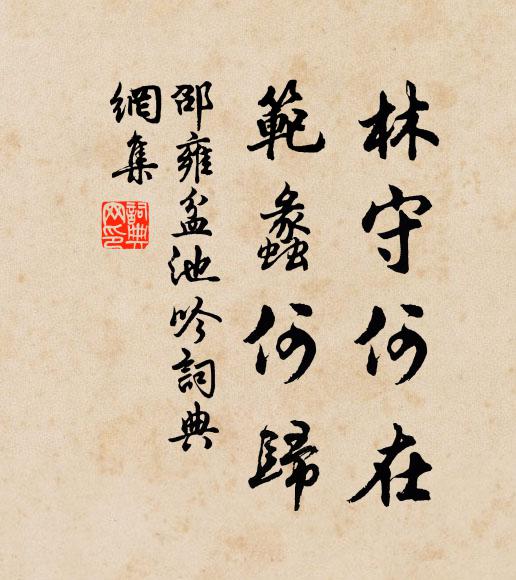 林守何在
範蠡何歸
邵雍盆池吟詞典
網集
詞典
网印